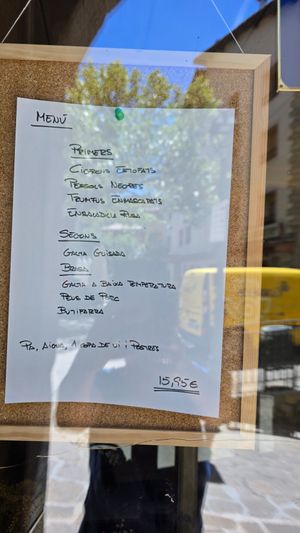 MENÚ
PRIMERS
CIGRONS ESTOFATS
PÈSOLS NEGRES
TRUMFUS EMMASCARATS
ENSALADILLA RUSA
SEGONS
GALTA GUISADA
BRASA
GALTA A BAIXA TEMPERATURA
PEUS DE PORC
BUTIFARRA
PA, AIGUA, 1 COPA DE VI i POSTRES
15,95€